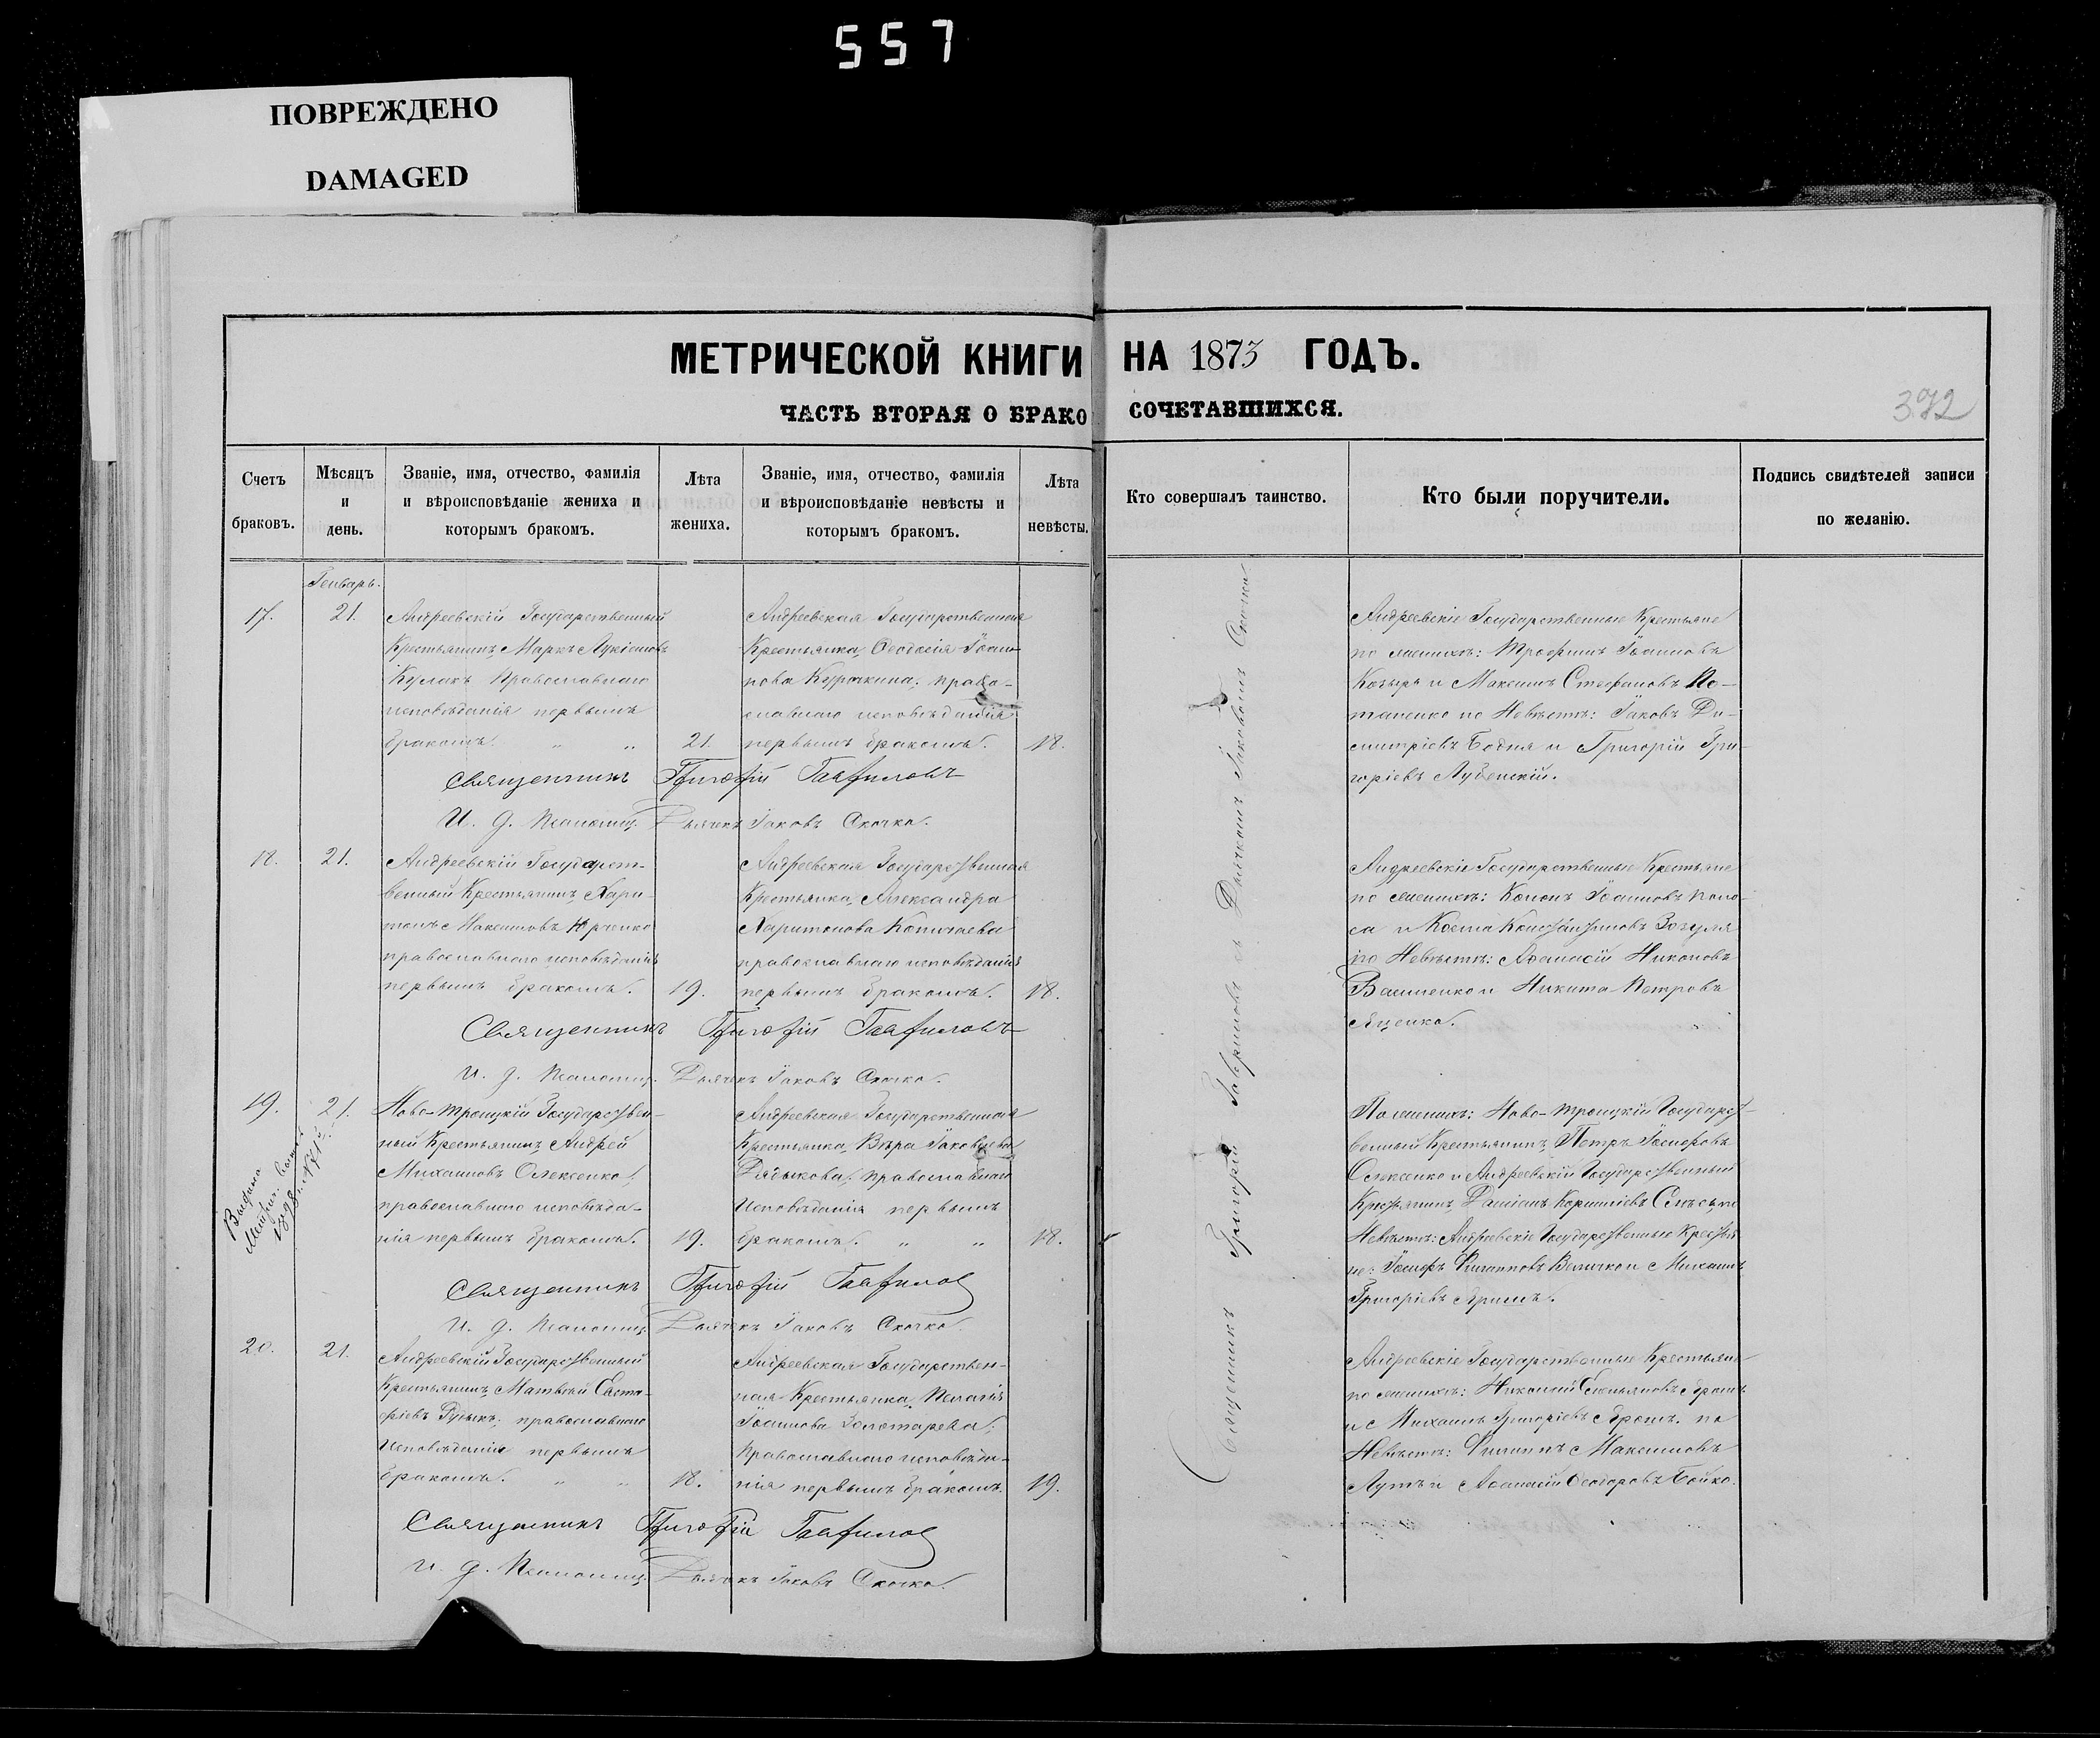 557
ПОВРЕЖДЕНО
DAMAGED
МЕТРИЧЕСКОЙ КНИГИ НА 1873 ГОДЪ.
ЧАСТЬ ВТОРАЯ О БРАКОСОЧЕТАВШИХСЯ.
372
Счетъ браковъ.
Мѣсяцъ и день.
Званіе, имя, отчество, фамилія
и вѣроисповѣданіе жениха и
которымъ бракомъ.
Лѣта жениха.
Званіе, имя, отчество, фамилія
и вѣроисповѣданіе невѣсты и
которымъ бракомъ.
Лѣта невѣсты.
Кто совершалъ таинство.
Кто были поручители.
Подпись свидѣтелей записи
по желанію.
Генварь.
17.
21.
Андреевскій Государственный
Крестьянинъ, Маркъ Лукіановъ
Кулакъ Православнаго
исповѣданія первымъ
бракомъ. " "
21.
Андреевская Государственная
Крестьянка, Ѳеодосія Іоан-
нова Курочкина; право-
славнаго исповѣданія
первымъ бракомъ.
18.
Андреевскіе Государственные Крестьяне
по женихѣ: Трофимъ Іоанновъ
Козырь и Максимъ Стефановъ По-
тапенко по Невѣстѣ: Іаковъ Ди-
митріевъ Бодня и Григорій Гри-
горіевъ Лубенскій.
Священникъ Григорій Гавриловъ
И. д. Псаломщ. Дьячекъ Іаковъ Скочко.
18.
21.
Андреевскій Государст-
венный Крестьянинъ Хари-
тонъ Максимовъ Юрченко
православнаго исповѣданія
первымъ бракомъ.
19.
Андреевская Государственная
Крестьянка, Александра
Харитонова
православнаго исповѣданія
первымъ бракомъ.
18.
Андреевскіе Государственные Крестьяне
по женихѣ: Кононъ Іоанновъ
и Косма Константиновъ Зозуля
по Невѣстѣ: Аѳанасій Никоновъ
Василенко и Никита Петровъ
Яценко.
Священникъ Григорій Гавриловъ
И. д. Псаломщ. Дьячекъ Іаковъ Скочко.
19.
21.
Выдана
Ново-Троицкій Государствен-
ный Крестьянинъ, Андрей
Михаиловъ Олексенко,
православнаго исповѣда-
нія первымъ бракомъ.
19.
Андреевская Государственная
Крестьянка, Вѣра Іаковлева
Дядькова, православнаго
Исповѣданія первымъ
бракомъ. " "
18.
По женихѣ: Ново-Троицкій Государст-
венный Крестьянинъ, Петръ Іосифовъ
Олексенко и Андреевскій Государственный
Крестьянинъ, Даміанъ
Невѣстѣ: Андреевскіе Государственные Крестья-
не: Іосифъ Филипповъ Величко и Михаилъ
Григоріевъ
Священникъ Григорій Гаврилов
И. д. Псаломщ. Дьячекъ Іаковъ Скочко
20.
21.
Андреевскій Государственный
Крестьянинъ, Матвѣй Евста-
фіевъ Рудыкъ, православнаго
Исповѣданія первымъ
бракомъ. " "
18.
Андреевская Государствен-
ная Крестьянка, Пелагія
Іоаннова Золотарева;
Православнаго исповѣда-
нія первымъ бракомъ.
19.
Андреевскіе Государственные Крестьяне
по женихѣ:
и Михаилъ Григоріевъ по
Невѣстѣ: Филиппъ Максимовъ
Лутъ и Аѳанасій Ѳеодоровъ Бойко.
Священникъ Григорій Гаврилов
и. д. Псаломщ. Дьячекъ Іаковъ Скочко.
Священникъ Григорій Гавриловъ съ Дьячкомъ Іаковомъ Скочко